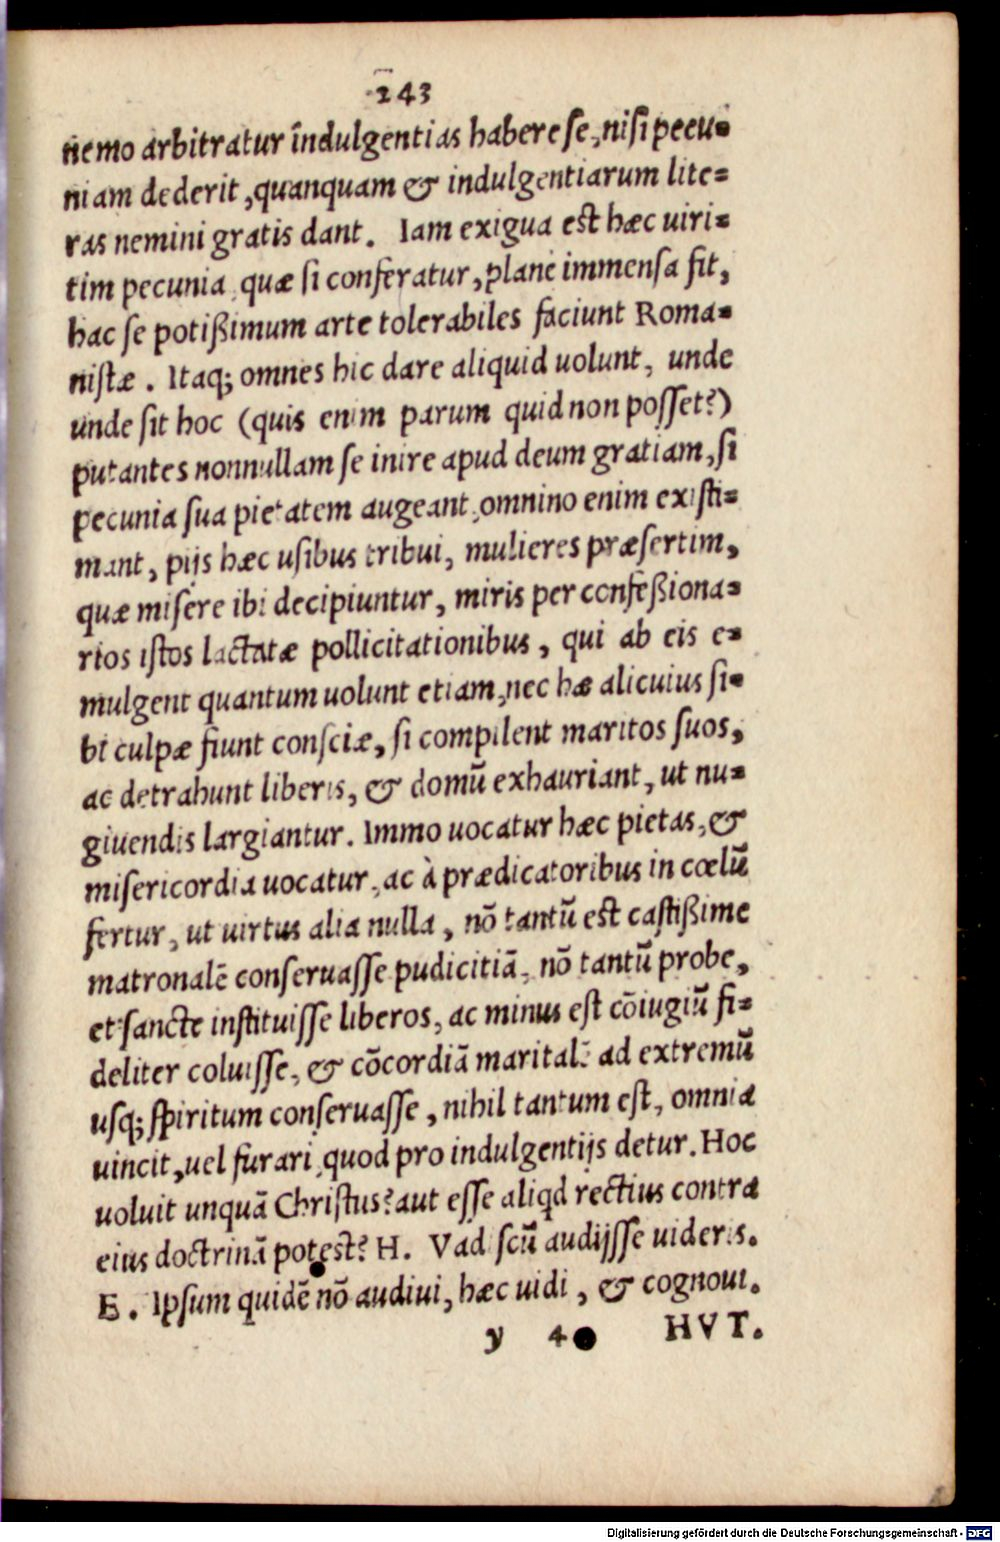 243
nemo arbitratur īndulgentias habere se, nisi pecu-
niam dederit, quanquam & indulgentiarum lite-
ras nemini gratis dant. Iam exigua est hæc uiri-
tim pecunia, quæ si conferatur, plane immensa fit,
hac se potißimum arte tolerabiles faciunt Roma-
nistæ. Itaq; omnes hic dare aliquid uolunt, unde
unde sit hoc (quis enim parum quid non posset?)
putantes nonnullam se inire apud deum gratiam, si
pecunia sua pietatem augeant, omnino enim existi-
mant, pijs hæc usibus tribui, mulieres præsertim,
quæ misere ibi decipiuntur, miris per confeßiona-
rios istos lactatæ pollicitationibus, qui ab eis e-
mulgent quantum uolunt etiam, nec hæ alicuius si-
bi culpæ fiunt consciæ, si compilent maritos suos,
ac detrahunt liberis, & domū exhauriant, ut nu-
giuendis largiantur. Immo uocatur hæc pietas, &
misericordia uocatur, ac à prædicatoribus in cœlū
fertur, ut uirtus alia nulla, nō tantū est castißime
matronalē conseruasse pudicitiā, nō tantū probe,
et sancte instituisse liberos, ac minus est cōiugiū fi-
deliter coluisse, & cōcordiā maritalē ad extremū
usq; spiritum conseruasse, nihil tantum est, omnia
uincit, uel furari, quod pro indulgentijs detur. Hoc
uoluit unquā Christus? aut esse aliqd rectius contra
eius doctrinā potest? H. Vad scū audijsse uideris.
E. Ipsum quidē nō audiui, hæc uidi, & cognoui.
y 4 HVT.
Digitalisierung gefördert durch die Deutsche Forschungsgemeinschaft - DFG